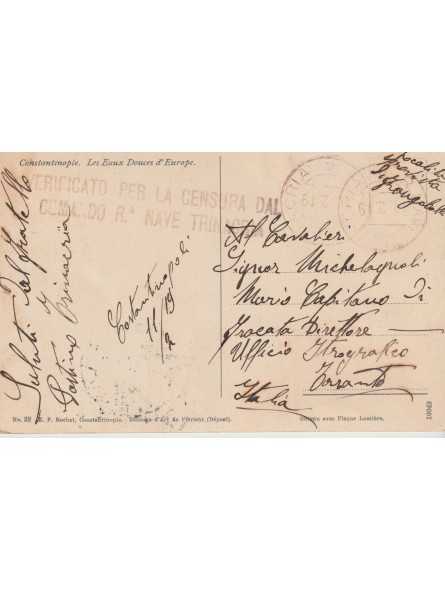 Constantinople. Les Eaux Douces d'Europe.
VERIFICATO PER LA CENSURA DAL
COMANDO Rª NAVE TRINACRIA
Saluti dal fratello
Costantinopoli
11/9
Al Cavalieri
Signor Michelagnoli
Mario Capitano Di
Fracata Direttore
Ufficio Itrografico
Taranto
Italia
No. 22 E. F. Rochat, Constantinople.
Cliché avec Plaque Lumière.
10049